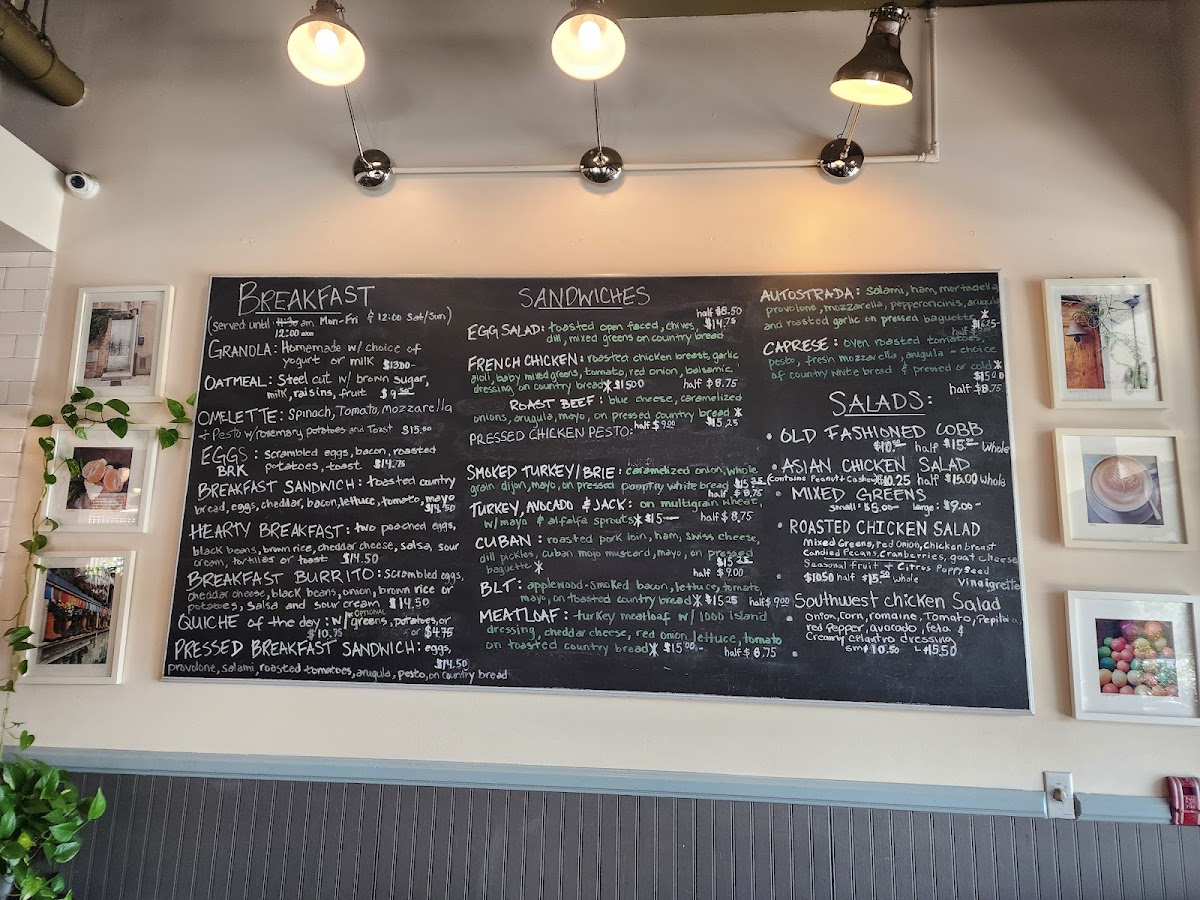 BREAKFAST
(served until 11:30 am Mon-Fri & 12:00 Sat/Sun)
12:00
GRANOLA: Homemade w/ choice of
yogurt or milk $13.00
OATMEAL: Steel cut w/ brown sugar,
milk, raisins, fruit $9.50
OMELETTE: Spinach, Tomato, Mozzarella
+ Pesto w/rosemary potatoes and Toast $15.00
EGGS: scrambled eggs, bacon, roasted
BRK potatoes, toast $14.75
BREAKFAST SANDWICH: toasted country
bread, eggs, cheddar, bacon, lettuce, tomato, mayo
$14.50
HEARTY BREAKFAST: two poached eggs,
black beans, brown rice, cheddar cheese, salsa, sour
cream, tortillas or toast $14.50
BREAKFAST BURRITO: scrambled eggs,
cheddar cheese, black beans, onion, brown rice or
potatoes, salsa and sour cream $14.50
QUICHE of the day: w/ greens, potatoes, or
OPTIONAL
$10.75 or $4.75
PRESSED BREAKFAST SANDWICH: eggs,
$14.50
provolone, salami, roasted tomatoes, arugula, pesto, on country bread
SANDWICHES
half $8.50
EGG SALAD: toasted open faced, chives, $14.75
dill, mixed greens on country bread
FRENCH CHICKEN: roasted chicken breast, garlic
aioli, baby mixed greens, tomato, red onion, balsamic
dressing on country bread* $15.00 half $8.75
ROAST BEEF: blue cheese, caramelized
onions, arugula, mayo, on pressed country bread *
half $9.00 $15.25
PRESSED CHICKEN PESTO:
SMOKED TURKEY/BRIE: caramelized onion, whole
grain dijon, mayo, on pressed country white bread $15.25
half $8.75
TURKEY, AVOCADO & JACK: on multigrain wheat,
w/ mayo & alfalfa sprouts* $15 half $8.75
CUBAN: roasted pork loin, ham, swiss cheese,
dill pickles, cuban mojo mustard, mayo, on pressed
baguette * $15.25
half $9.00
BLT: applewood-smoked bacon, lettuce, tomato,
mayo, on toasted country bread* $15.25 half $9.00
MEATLOAF: turkey meatloaf w/ 1000 Island
dressing, cheddar cheese, red onion, lettuce, tomato
on toasted country bread* $15.00 half $8.75
AUTOSTRADA: Salami, ham, mortadella
provolone, mozzarella, pepperoncinis, arugula
and roasted garlic on pressed baguette *
half $16.25
CAPRESE: oven roasted tomatoes,
pesto, fresh mozzarella, arugula - choice
of country white bread & pressed or cold*
$15.00
half $8.75
SALADS:
• OLD FASHIONED COBB
half $15. Whole
• ASIAN CHICKEN SALAD
(contains Peanut + Cashew) $10.25 half $15.00 whole
• MIXED GREENS
small: $5.00 large: $9.00
• ROASTED CHICKEN SALAD
Mixed Greens, red Onion, Chicken breast
Candied Pecans, Cranberries, goat cheese
Seasonal Fruit + Citrus Poppyseed
vinaigrette
$10.50 half $15.50 whole
• Southwest chicken Salad
Onion, Corn, romaine, Tomato, Pepita,
red Pepper, avocado, feta &
Creamy cilantro dressing
sm $10.50 L $15.50